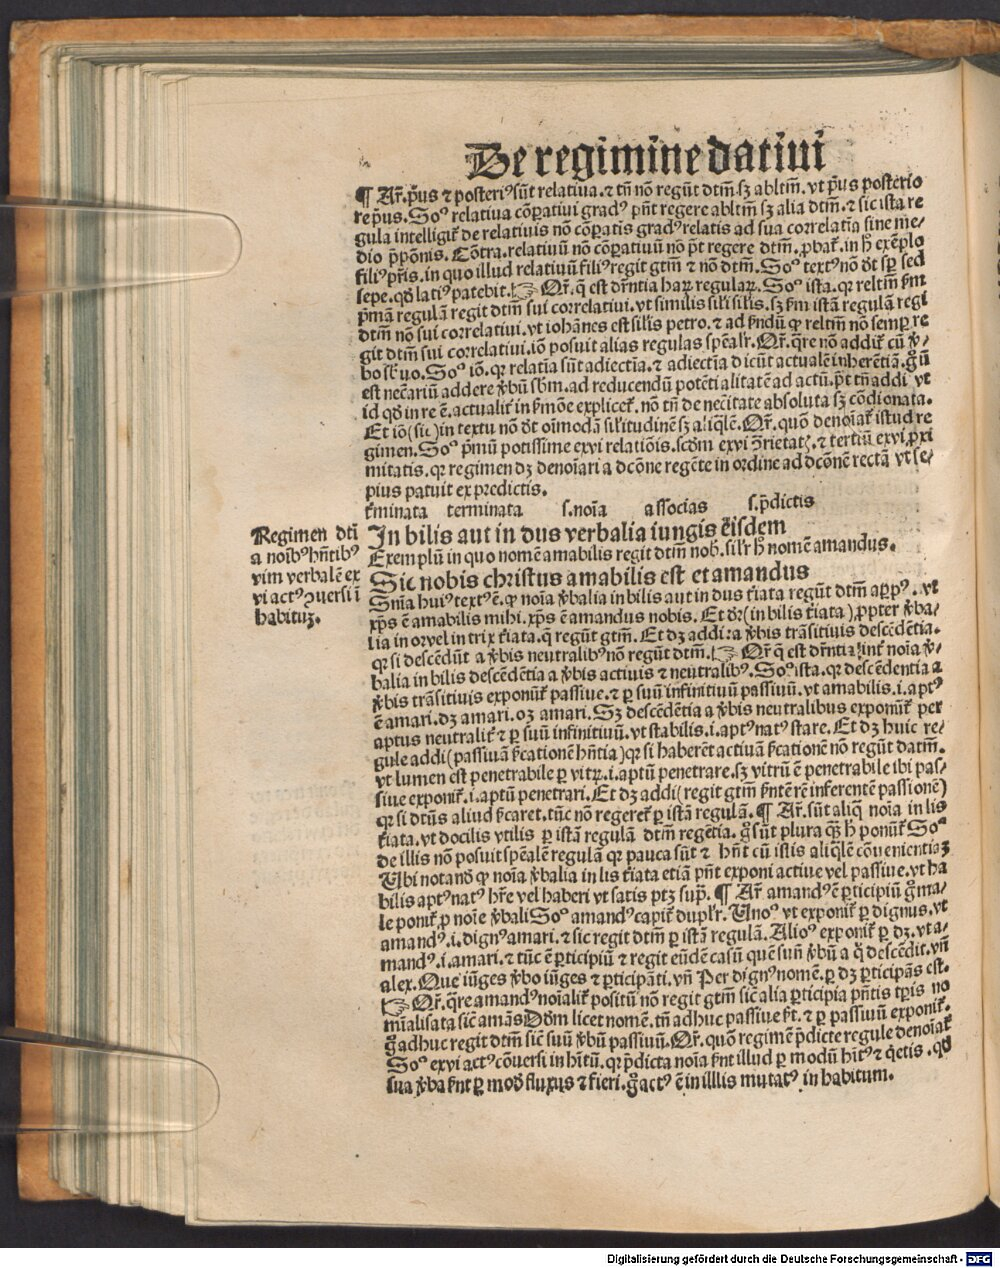 De regimine datiui
¶ Ar̄. p̄us ⁊ posteri⁹ sūt relatiua. ⁊ tn̄ nō regūt dtm̄. sꝫ abltm̄. vt p̄us posterio
re p̄us. So⁹ relatiua cōꝑatiui grad⁹ pn̄t regere abltm̄ sꝫ alia dtm̄. ⁊ sic ista re
gula intelligit̄ de relatiuis nō cōꝑatis grad⁹ relatis ad sua correlatīa sine me⸗
dio p̄pōnis. Cōtra. relatiuū nō cōꝑatiuū nō pōt regere dtm̄. ꝓbat̄. in h̊ exēplo
fili⁹ pr̄is. in quo illud relatiuū fili⁹ regit gtm̄ ⁊ nō dtm̄. So⁹ text⁹ nō dt̄ sꝑ sed
sepe. qd̄ lati⁹ patebit. ☞ Qr̄. q̄ est dr̄ntia haꝝ regulaꝝ. So⁹ ista. qꝛ reltm̄ ẜm
p̄mā regulā regit dtm̄ sui correlatiui. vt similis sil̄i sil̄is. sꝫ ẜm istā regulā regi
dtm̄ nō sui correlatiui. vt iohānes est sil̄is petro. ⁊ ad ẜndū ꝙ reltm̄ nō semꝑ re
git dtm̄ sui correlatiui. iō posuit alias regulas sp̄eal̄r. Qr̄. q̄re nō addit̄ cū v̄⸗
bo sb̄uo. So⁹ iō. qꝛ relatīa sūt adiectīa. ⁊ adiectīa dicūt actualē inherētiā. g̊ nū
est nec̄ariū addere v̄bū sb̄m. ad reducendū potētialitatē ad actū. p̄t tn̄ addi vt
id qd̄ in re ē. actualit̄ in ẜmōe explicet̄. nō tn̄ de nec̄itate absoluta sꝫ cōdionata.
Et iō (sic) in textu nō dt̄ oīmodā sil̄itudinē sꝫ aliq̄lē. Qr̄. quō denoīat̄ istud re
gimen. So⁹ p̄mū potissime exvi relatiōis. scdm exvi ꝯrietat⸝. ⁊ tertiū exvi ꝓxi
mitatis. qꝛ regimen dꝫ denoīari a dcōne regēte in ordine ad dcōnē rectā vt se⸗
pius patuit ex predictis.
t̄minata terminata s. noīa associas s. p̄dictis
In bilis aut in dus verbalia iungis eisdem
Exemplū in quo nomē amabilis regit dtm̄ nob̄. sil̄r h̊ nomē amandus.
Sic nobis christus amabilis est et amandus
Regimen dti
a noīb⁹ hn̄tib⁹
vim verbalē ex
vi act⁹ ꝯuersi ī
habituꝫ.
Sn̄ia hui⁹ text⁹ ē. ꝙ noīa v̄balia in bilis aut in dus t̄iata regūt dtm̄ aꝑp⁹. vt
xp̄s ē amabilis mihi. xp̄s ē amandus nobis. Et dr̄ (in bilis t̄iata) ꝓpter v̄ba⸗
lia in or vel in trix t̄iata. q̄ regūt gtm̄. Et dꝫ addi: a v̄bis trāsitiuis descēdētia.
qꝛ si descēdūt a v̄bis neutralib⁹ nō regūt dtm̄. ☞ Qr̄. q̄ est dr̄ntia int̄ noīa v̄⸗
balia in bilis descēdētia a v̄bis actiuis ⁊ neutralib⁹. So⁹ ista. qꝛ descēdentia a
v̄bis trāsitiuis exponūt̄ passiue. ⁊ ꝑ suū infinitiuū passiuū. vt amabilis. i. apt⁹
ē amari. dꝫ amari. oꝫ amari. Sꝫ descēdētia a v̄bis neutralibus exponūt̄ per
aptus neutralit̄ ⁊ ꝑ suū infinitiuū. vt stabilis. i. apt⁹ nat⁹ stare. Et dꝫ huic re⸗
gule addi (passiuā ẜcationē hn̄tia) qꝛ si haberēt actiuā ẜcationē nō regūt datm̄.
vt lumen est penetrabile ꝑ vitꝝ. i. aptū penetrare. sꝫ vitrū ē penetrabile ibi pas⸗
siue exponit̄. i. aptū penetrari. Et dꝫ addi (regit gtm̄ ẜntē rē inferentē passionē)
qꝛ si dtūs aliud ẜcaret. tūc nō regeret̄ ꝑ istā regulā. ¶ Ar̄. sūt aliq̄ noīa in lis
t̄iata. vt docilis vtilis ꝑ istā regulā dtm̄ regētia. g̊ sūt plura q̄ꝫ h̊ ponūt̄ So⁹
de illis nō posuit sp̄ealē regulā qꝛ pauca sūt ⁊ hn̄t cū istis aliq̄lē cōuenientiaꝫ
Ubi notand̄ ꝙ noīa v̄balia in lis t̄iata etiā pn̄t exponi actiue vel passiue. vt ha
bilis apt⁹ nat⁹ hr̄e vel haberi vt satis ptꝫ sup̄. ¶ Ar̄ amand⁹ ē ꝑticipiū g̊ ma⸗
le ponit̄ ꝓ noīe v̄bali So⁹ amand⁹ capit̄ dupl̄r. Uno⁹ vt exponit̄ ꝑ dignus. vt
amand⁹. i. dign⁹ amari. ⁊ sic regit dtm̄ ꝑ istā regulā. Alio⁹ exponit̄ ꝑ dꝫ. vt a⸗
mand⁹. i. amari. ⁊ tūc ē ꝑticipiū ⁊ regit eūdē casū quē suū v̄bū a q̊ descēdit. vn̄
alex. Que iūges v̄bo iūges ⁊ ꝑticipāti. vn̄ Per dign⁹ nomē. ꝑ dꝫ ꝑticipās est.
☞ Qr̄. q̄re amand⁹ noīalit̄ positū nō regit gtm̄ sic̄ alia ꝑticipia pn̄tis tp̄is no
mīalisata sic̄ amās Dōm licet nomē. tn̄ adhuc passiue ẜt. ⁊ ꝑ passiuū exponit̄.
g̊ adhuc regit dtm̄ sic̄ suū v̄bū passiuū. Qr̄. quō regimē p̄dicte regule denoīat̄
So⁹ exvi act⁹ cōuersi in hītū. qꝛ p̄dicta noīa ẜnt illud ꝑ modū hīt⁹ ⁊ q̄etis. qd̄
sua v̄ba ẜnt ꝑ mod̄ fluxus ⁊ fieri. g̊ act⁹ ē in illis mutat⁹ in habitum.
Digitalisierung gefördert durch die Deutsche Forschungsgemeinschaft - DFG